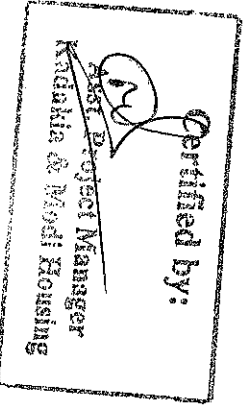 Certified by:
Asst Project Manager
Kadakia & Modi Housing